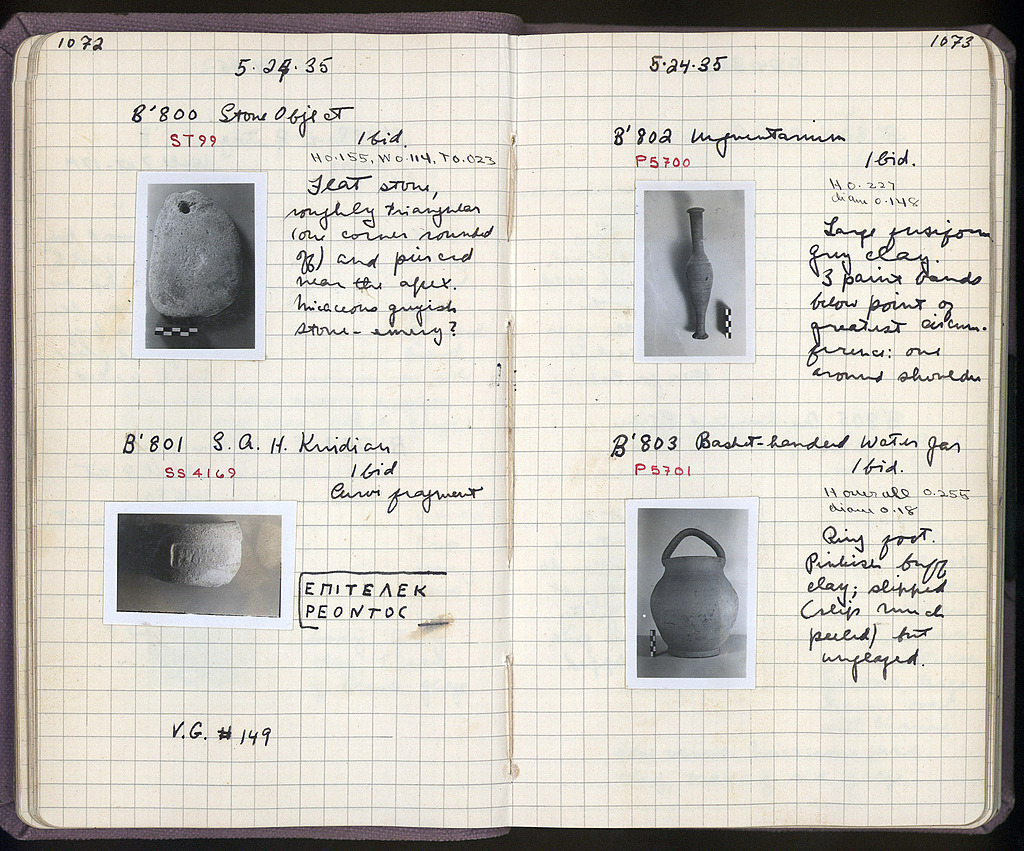 1072
5·24·35
B'800 Stone Object
ST 99
Ibid.
H 0.155, W 0.114, T 0.023
Flat stone,
roughly triangular
(one corner rounded
off) and pierced
near the apex.
Micaceous greyish
stone - emery?
B'801 S. A. H. Knidian
SS 4169
Ibid
Curved fragment
ΕΠΙΤΕΛΕΚ
ΡΕΟΝΤΟϹ
V.G. # 149
1073
5·24·35
B'802 Unguentarium
P 5700
Ibid.
H 0.227
diam 0.148
Large fusiform
grey clay.
3 paint bands
below point of
greatest circum-
ference: one
around shoulder
B'803 Basket-handled Water Jar
P 5701
Ibid.
H overall 0.255
diam 0.18
Ring foot.
Pinkish buff
clay; slipped
(slip much
peeled) but
unglazed.